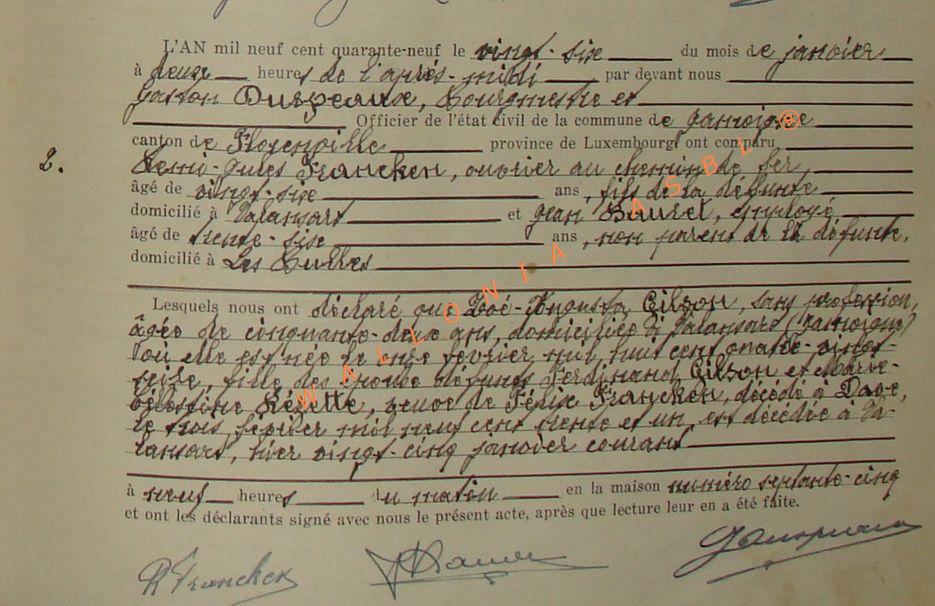 L'AN mil neuf cent quarante-neuf le vingt-six du mois de janvier
à deux heures de l'après-midi par devant nous
Gaston Duspeaux, Bourgmestre et
Officier de l'état civil de la commune de Jamoigne
canton de Florenville province de Luxembourg ont comparu
2.
Remi-Jules Francken, ouvrier au chemin de fer,
âgé de vingt-six ans, fils de la défunte
domicilié à Valansart et Jean Bauret, employé
âgé de trente-six ans, non parent de la défunte.
domicilié à Les Bulles
Lesquels nous ont déclaré que Zoé-Augusta Gilson, sans profession,
âgée de cinquante-deux ans, domiciliée à Valansart (Jamoigne)
où elle est née le onze février mil huit cent quatre-vingt-
seize, fille des époux défunts Ferdinand Gilson et Marie-
Célestine, veuve de Francken, décédé à Dave,
le trois février mil neuf cent trente et un, est décédée à Va-
lansart, hier vingt-cinq janvier courant
à neuf heures du matin en la maison numéro septante-cinq
et ont les déclarants signé avec nous le présent acte, après que lecture leur en a été faite.
R Francken
WALLONIA ASBL ®